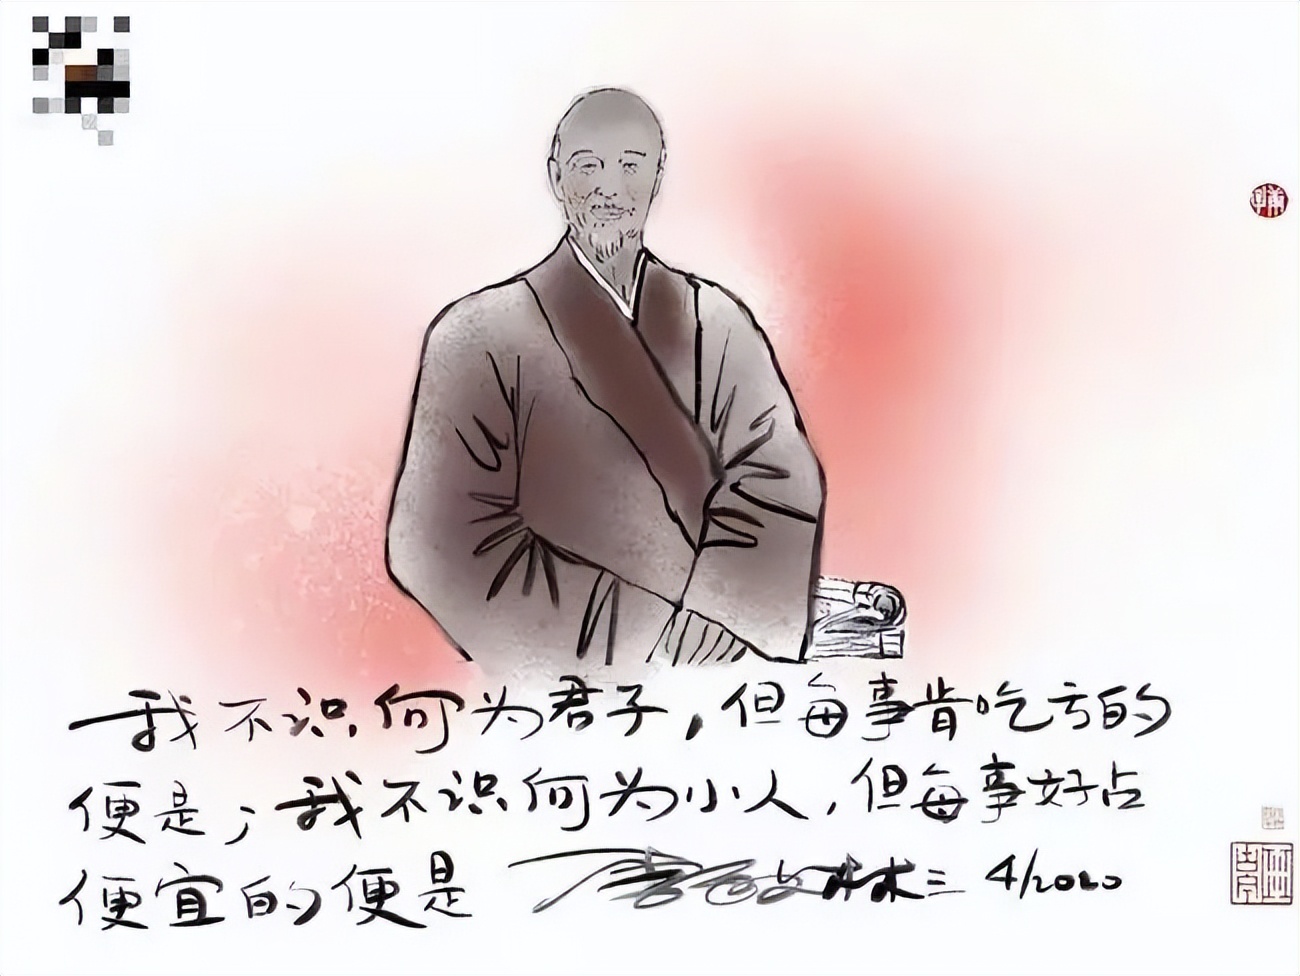 我不识何为君子,但每事肯吃亏的
便是;我不识何为小人,但每事好占
便宜的便是 林三 4/2020